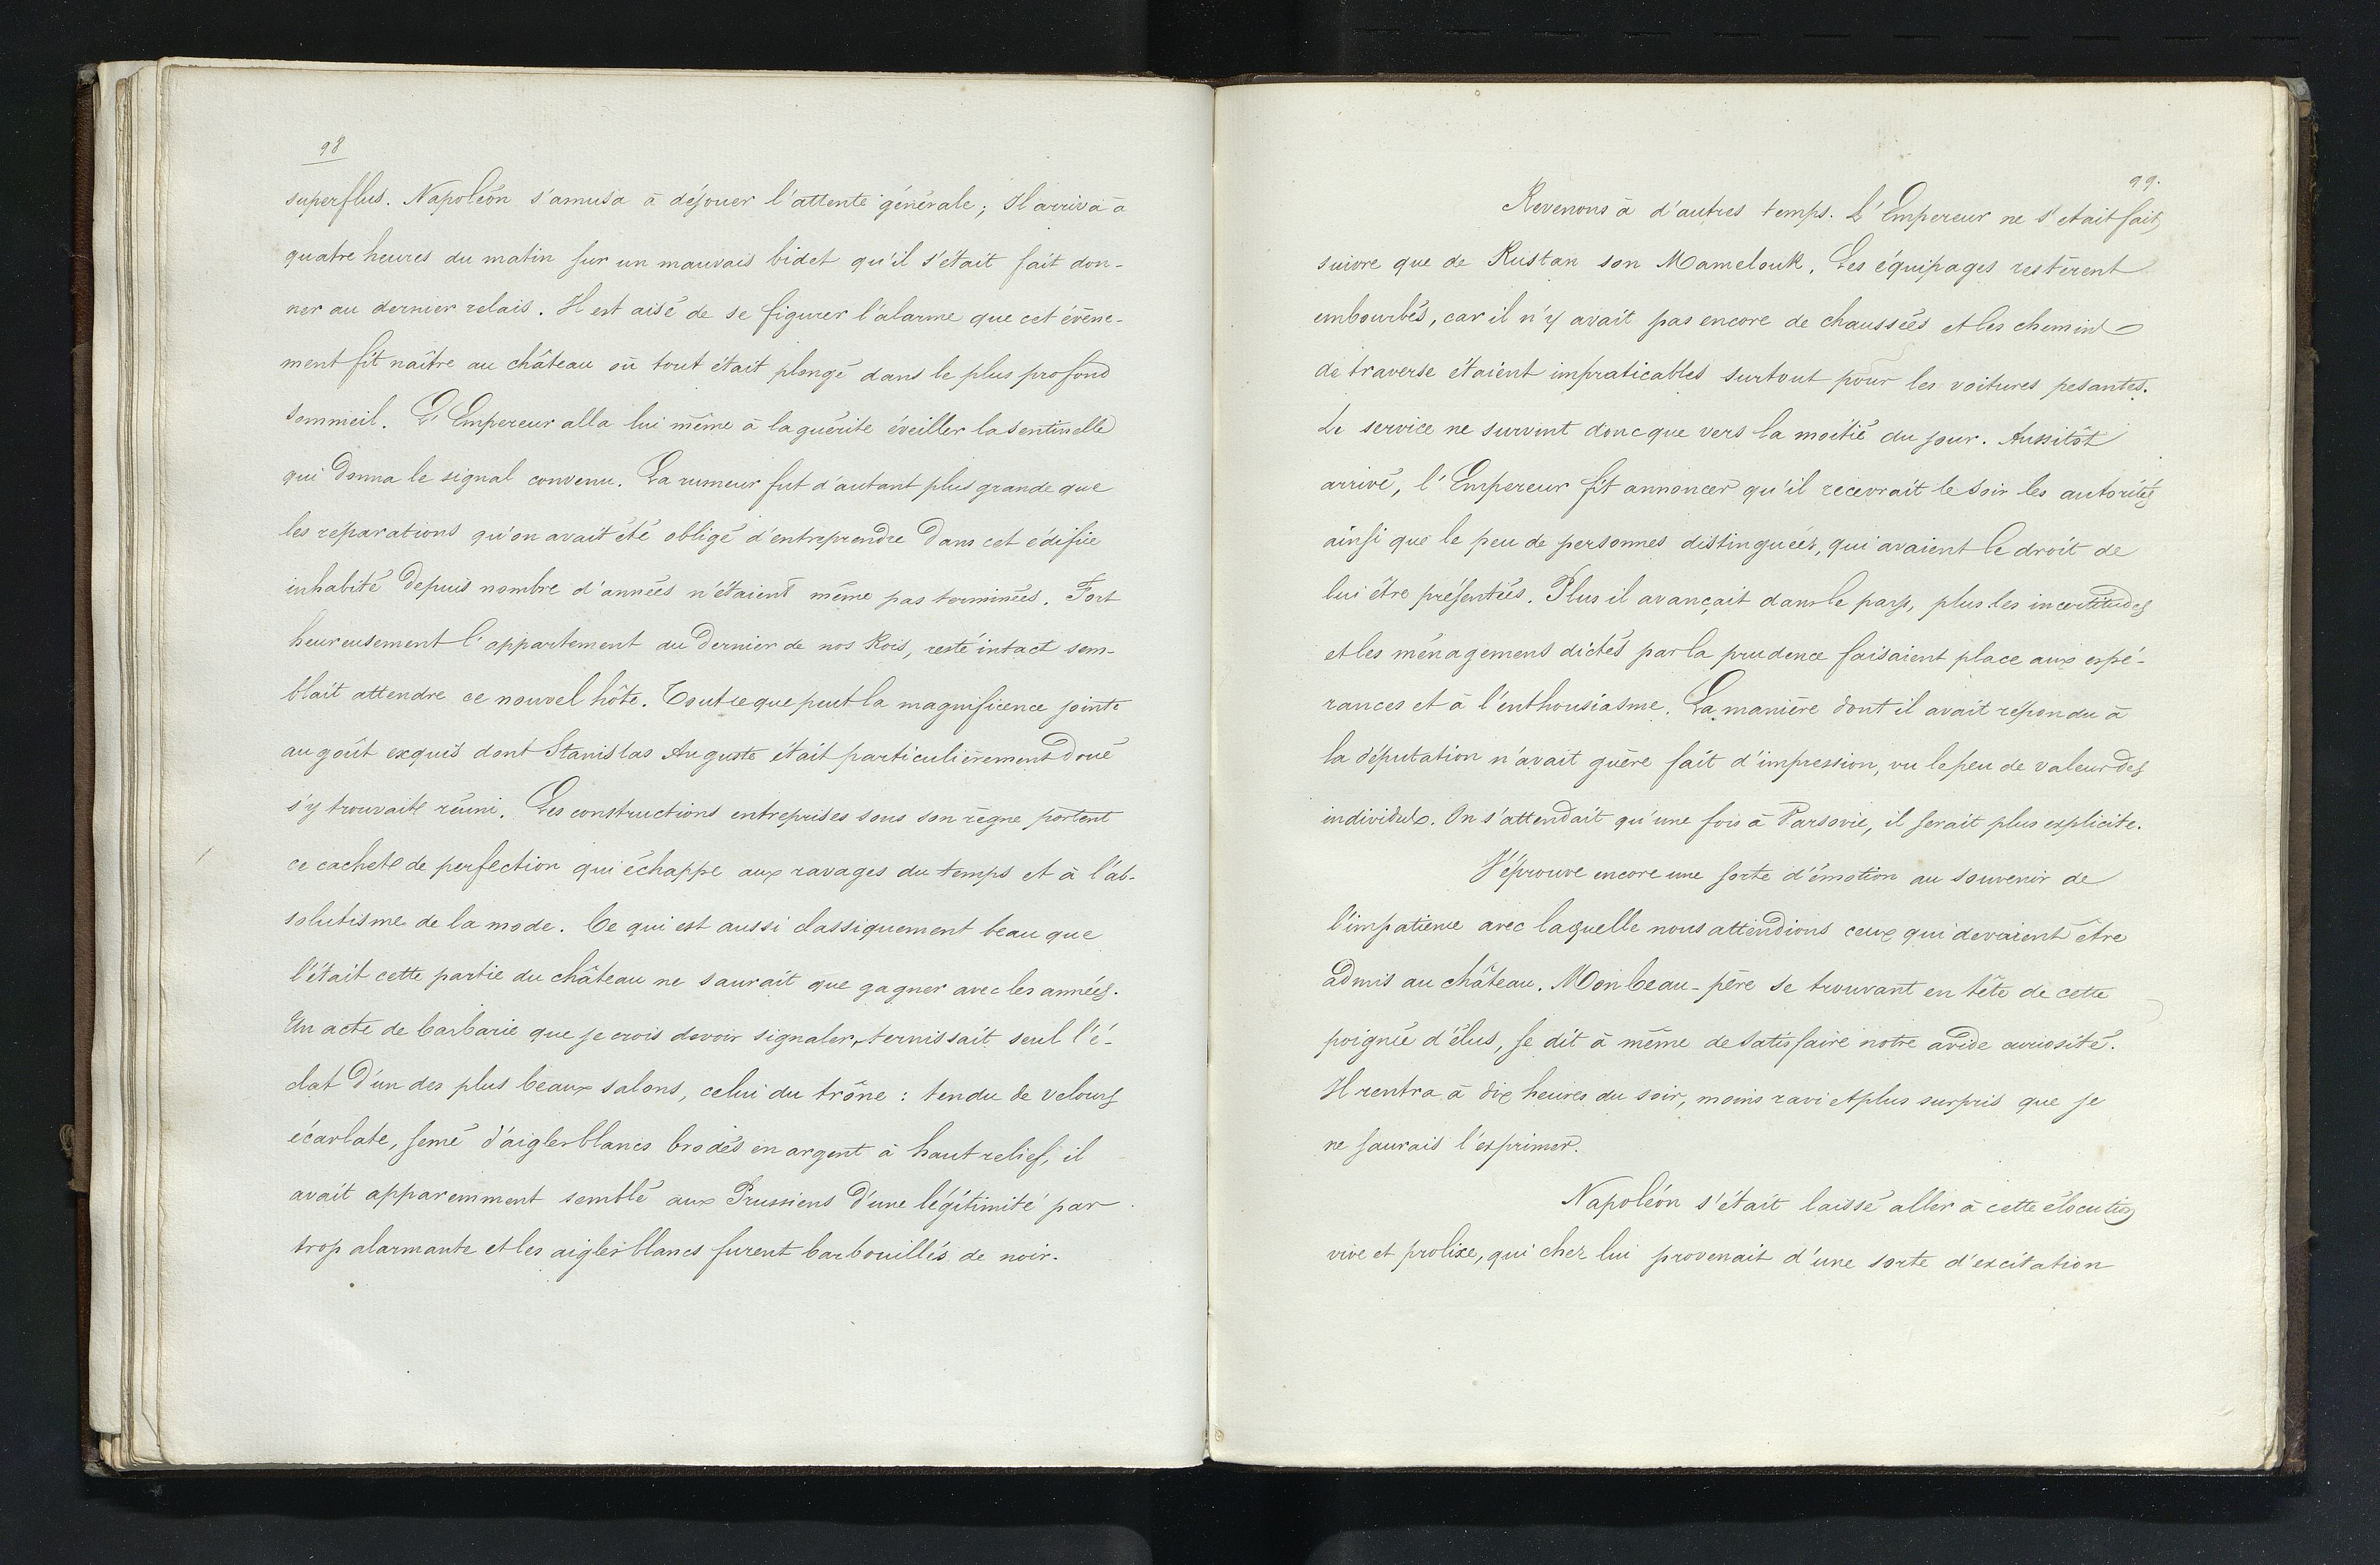 98
superflus. Napoléon s'amusa à déjouer l'attente générale; Il arriva à
quatre heures du matin sur un mauvais bidet qu'il s'était fait don-
ner au dernier relais. Il est aisé de se figurer l'alarme que cet évène-
ment fit naître au château où tout était plongé dans le plus profond
sommeil. L'Empereur alla lui même à la guérite éveiller la sentinelle
qui donna le signal convenu. La rumeur fut d'autant plus grande que
les réparations qu'on avait été obligé d'entreprendre dans cet édifice
inhabité depuis nombre d'années n'étaient même pas terminées. Fort
heureusement l'appartement du dernier de nos Rois, resté intact sem-
blait attendre ce nouvel hôte. Tout ce que peut la magnificence jointe
au goût exquis dont Stanislas Auguste était particulièrement doué
s'y trouvait réuni. Les constructions entreprises sous son règne portent
ce cachet de perfection qui échappe aux ravages du temps et à l'ab-
solutisme de la mode. Ce qui est aussi classiquement beau que
l'était cette partie du château ne saurait que gagner avec les années.
Un acte de barbarie que je crois devoir signaler, ternissait seul l'é-
clat d'un des plus beaux salons, celui du trône: tendu de velours
écarlate, semé d'aigles blancs brodés en argent à haut relief, il
avait apparemment semblé aux Prussiens d'une légitimité par
trop alarmante et les aigles blancs furent barbouillés de noir.
99.
Revenons à d'autres temps. L'Empereur ne s'etait fait
suivre que de Rustan son Mamelouk. Les équipages restèrent
embourbés, car il n'y avait pas encore de chaussées et les chemins
de traverse étaient impraticables surtout pour les voitures pesantes.
Le service ne survint donc que vers la moitié du jour. Aussitôt
arrivé, l'Empereur fit annoncer qu'il recevrait le soir les autorités
ainsi que le peu de personnes distinguées, qui avaient le droit de
lui être présentées. Plus il avançait dans le pays, plus les incertitudes
et les ménagemens dictés par la prudence faisaient place aux espé-
rances et à l'enthousiasme. La manière dont il avait répondu à
la députation n'avait guère fait d'impression, vu le peu de valeur des
individus. On s'attendait qu'une fois à Varsovie, il serait plus explicite.
J'éprouve encore une sorte d'émotion au souvenir de
l'impatience avec laquelle nous attendions ceux qui devaient être
admis au château. Mon beau-père se trouvant en tête de cette
poignée d'élus, se dit à même de satisfaire notre avide curiosité.
Il rentra à dix heures du soir, moins ravi et plus surpris que je
ne saurais l'exprimer.
Napoléon s'était laissé aller à cette élocution
vive et prolixe, qui chez lui provenait d'une sorte d'excitation